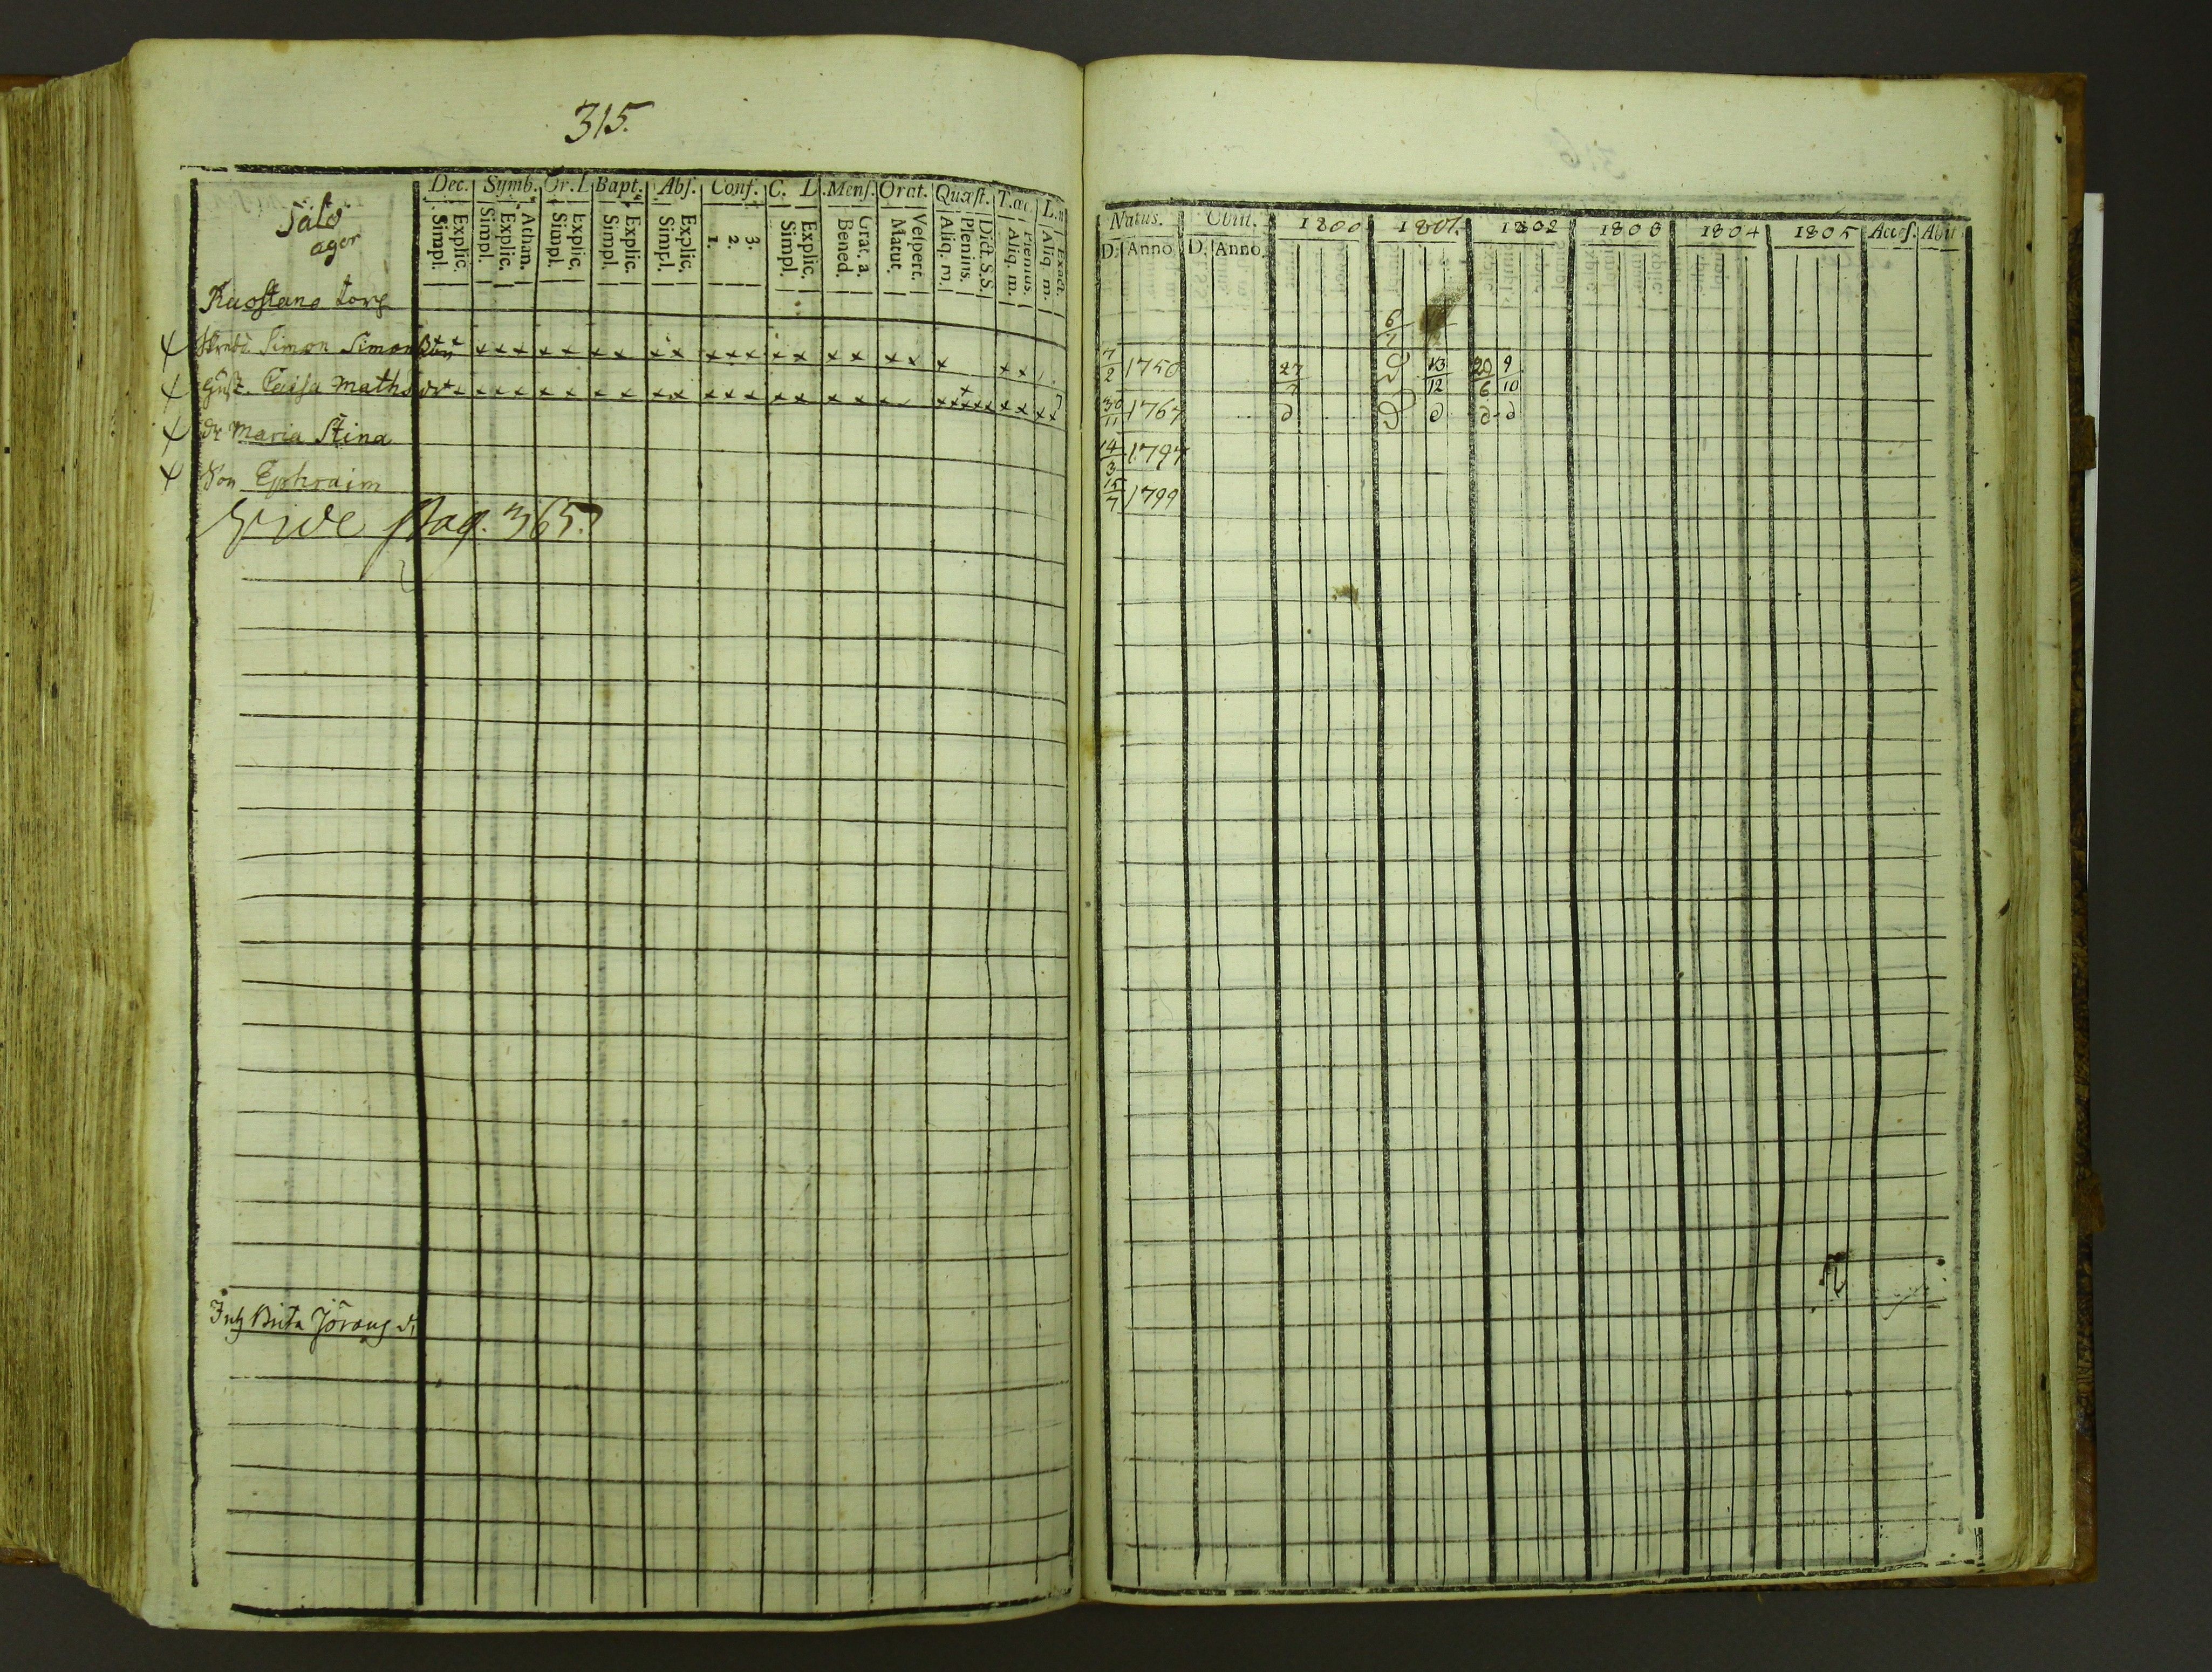 315.
Dec. Symb. Or. L Bapt. Abs. Conf. C. L. Mens. Orat. Quæst. T.œc. L.n
Simpl. Explic. Simpl. Explic. Athan. Simpl. Explic. Simpl. Explic. Simpl. Explic. 1. 2. 3. Simpl. Explic. Bened. Grat. a. Matut. Vespert. Aliq. m. Plenius. Dict. S.S. Aliq. m. Plenius. Aliq. m. Exact.
Salo
ager
torp
Simon Simonsson
Caisa Mathsdr
dr Maria Stina
Son Ephraim
Vide Pag. 365.
Brita Jörans dr
Natus. Obiit. 1800 1801. 1802 1803 1804 1805 Acces. Abit
D. Anno D. Anno.
7/2 1750 27/7 13/12 20/6 9/10
30/11 1767 d d d d
14/3 1797
15/7 1799